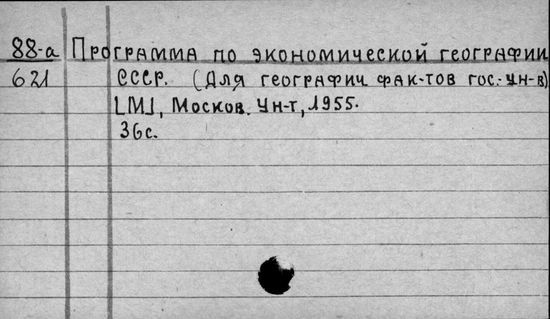 88-а Программа по экономической географии
621 СССР. (Для географич фак-тов гос.-ун-в)
[М], Москов. Ун-т, 1955.
36с.